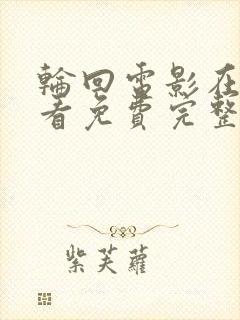 輪回電影在
看免費完整
紫芙蘿